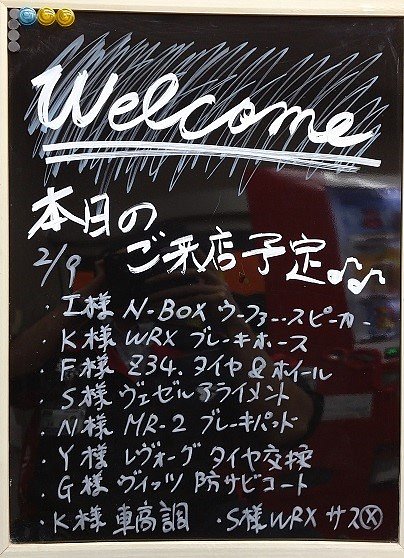 Welcome
本日の
2/9 ご来店予定♪♪
・I様 N-BOX ウーファー・スピーカー
・K様 WRX ブレーキホース
・F様 Z34. タイヤ&ホイール
・S様 ヴェゼル アライメント
・N様 MR-2 ブレーキパット
・Y様 レヴォーグ タイヤ交換
・G様 ヴィッツ 防サビコート
・K様 車高調 ・S様 WRX サスⓧ